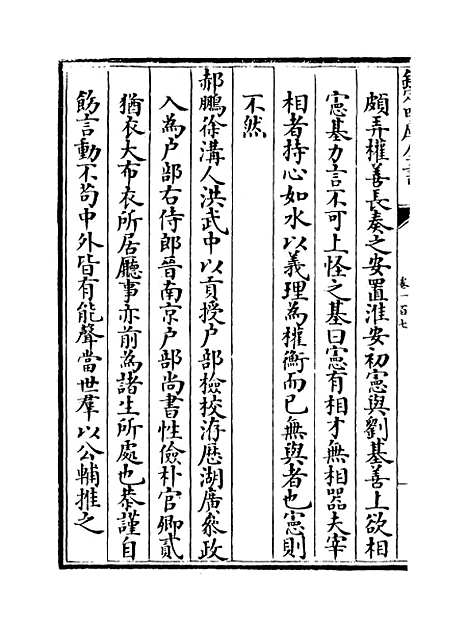 欽定四庫全書
卷一百七
頗弄權善長奏之安置淮安初憲與劉基善上欲相
憲基力言不可上怪之基曰憲有相才無相器夫宰
相者持心如水以義理為權衡而已無與者也憲則
不然
郝鵬徐溝人洪武中以貢授户部檢校洊歴湖廣叅政
入為户部右侍郎晉南京户部尚書性儉朴官卿貳
猶衣大布衣所居廳事亦前為諸生所處也恭謹自
飭言動不苟中外皆有能聲當世羣以公輔推之